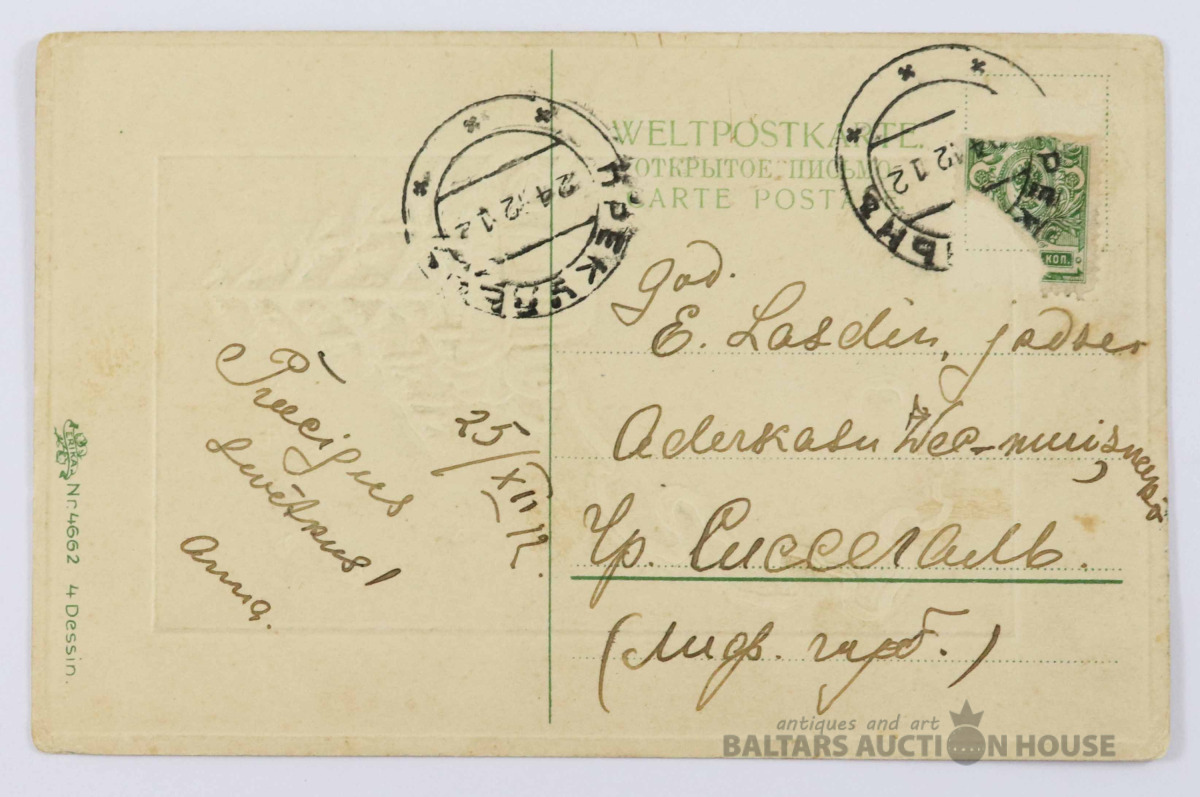 WELTPOSTKARTE.
ОТКРЫТОЕ ПИСЬМО
CARTE POSTA
24.12.12
24.12.12
КОП.
God.
E. Lasdin,
Aderkasu
Чр. Сиссегаль.
(Лифв. губ.)
Preecigus
swētkus!
Anna.
25/XII 12.
ERIKA
Nr. 4662 4 Dessin.
antiques and art
BALTARS AUCTION HOUSE